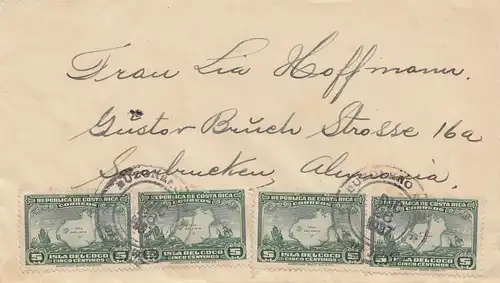 Frau Lia Hoffmann.
Gustov Brŭch Strosse 16a
Saarbrucken, Alemania,
REPUBLICA DE COSTA RICA
CORREOS
5 5
ISLA DEL COCO
CINCO CENTIMOS
REPUBLICA DE COSTA RICA
CORREOS
5 5
ISLA DEL COCO
CINCO CENTIMOS
REPUBLICA DE COSTA RICA
CORREOS
5 5
ISLA DEL COCO
CINCO CENTIMOS
REPUBLICA DE COSTA RICA
CORREOS
5 5
ISLA DEL COCO
CINCO CENTIMOS